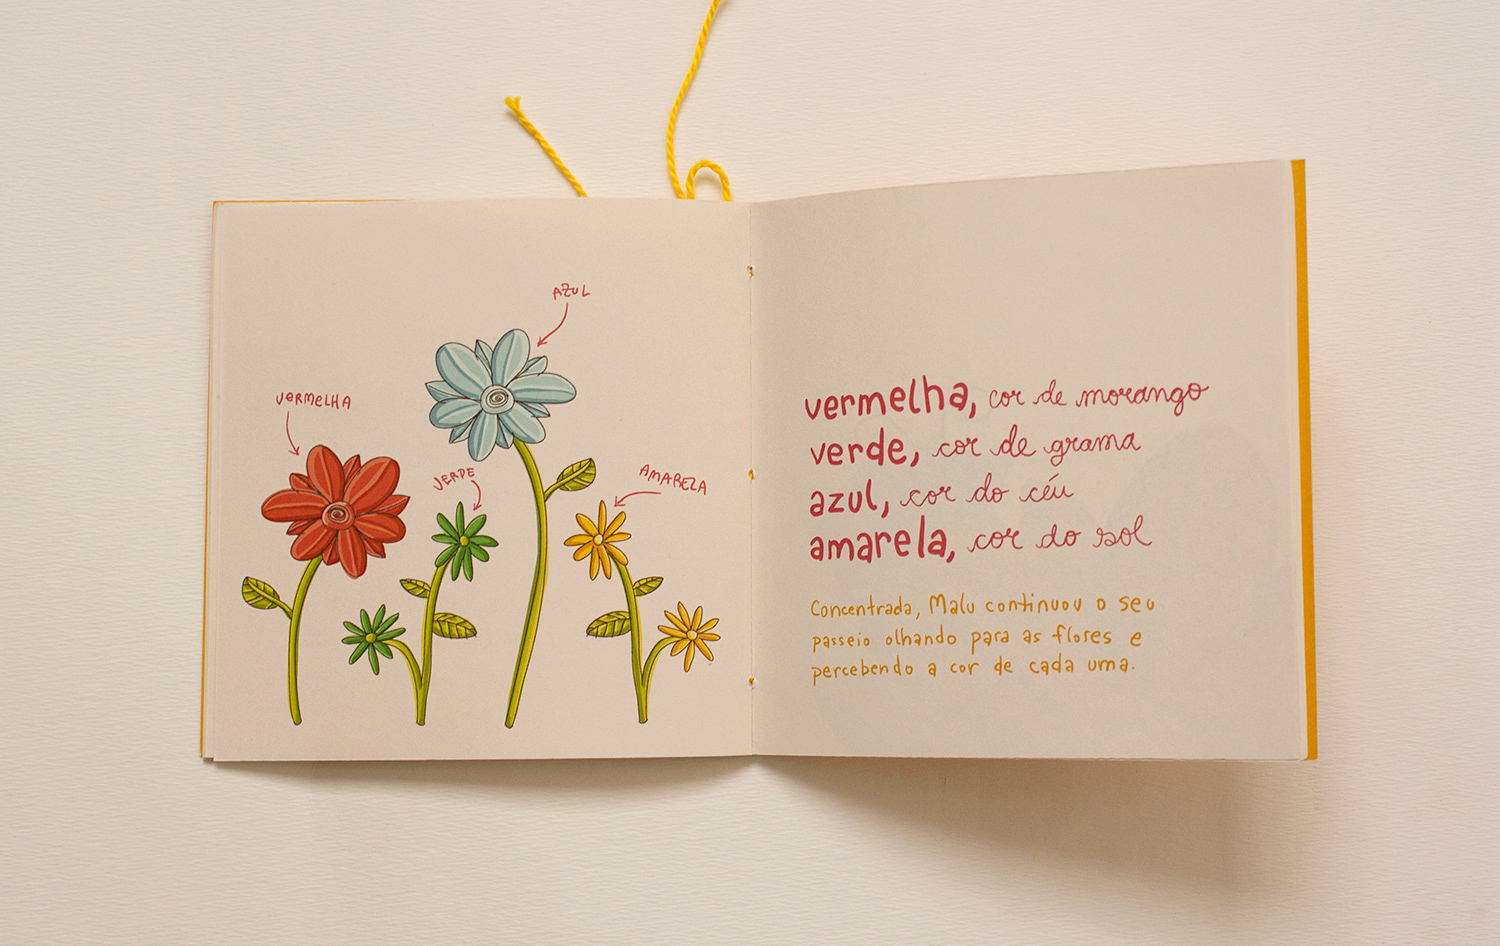 AZUL
VERMELHA
VERDE
AMARELA
vermelha, cor de morango
verde, cor de grama
azul, cor do céu
amarela, cor do sol
Concentrada, Malu continuou o seu
passeio olhando para as flores e
percebendo a cor de cada uma.